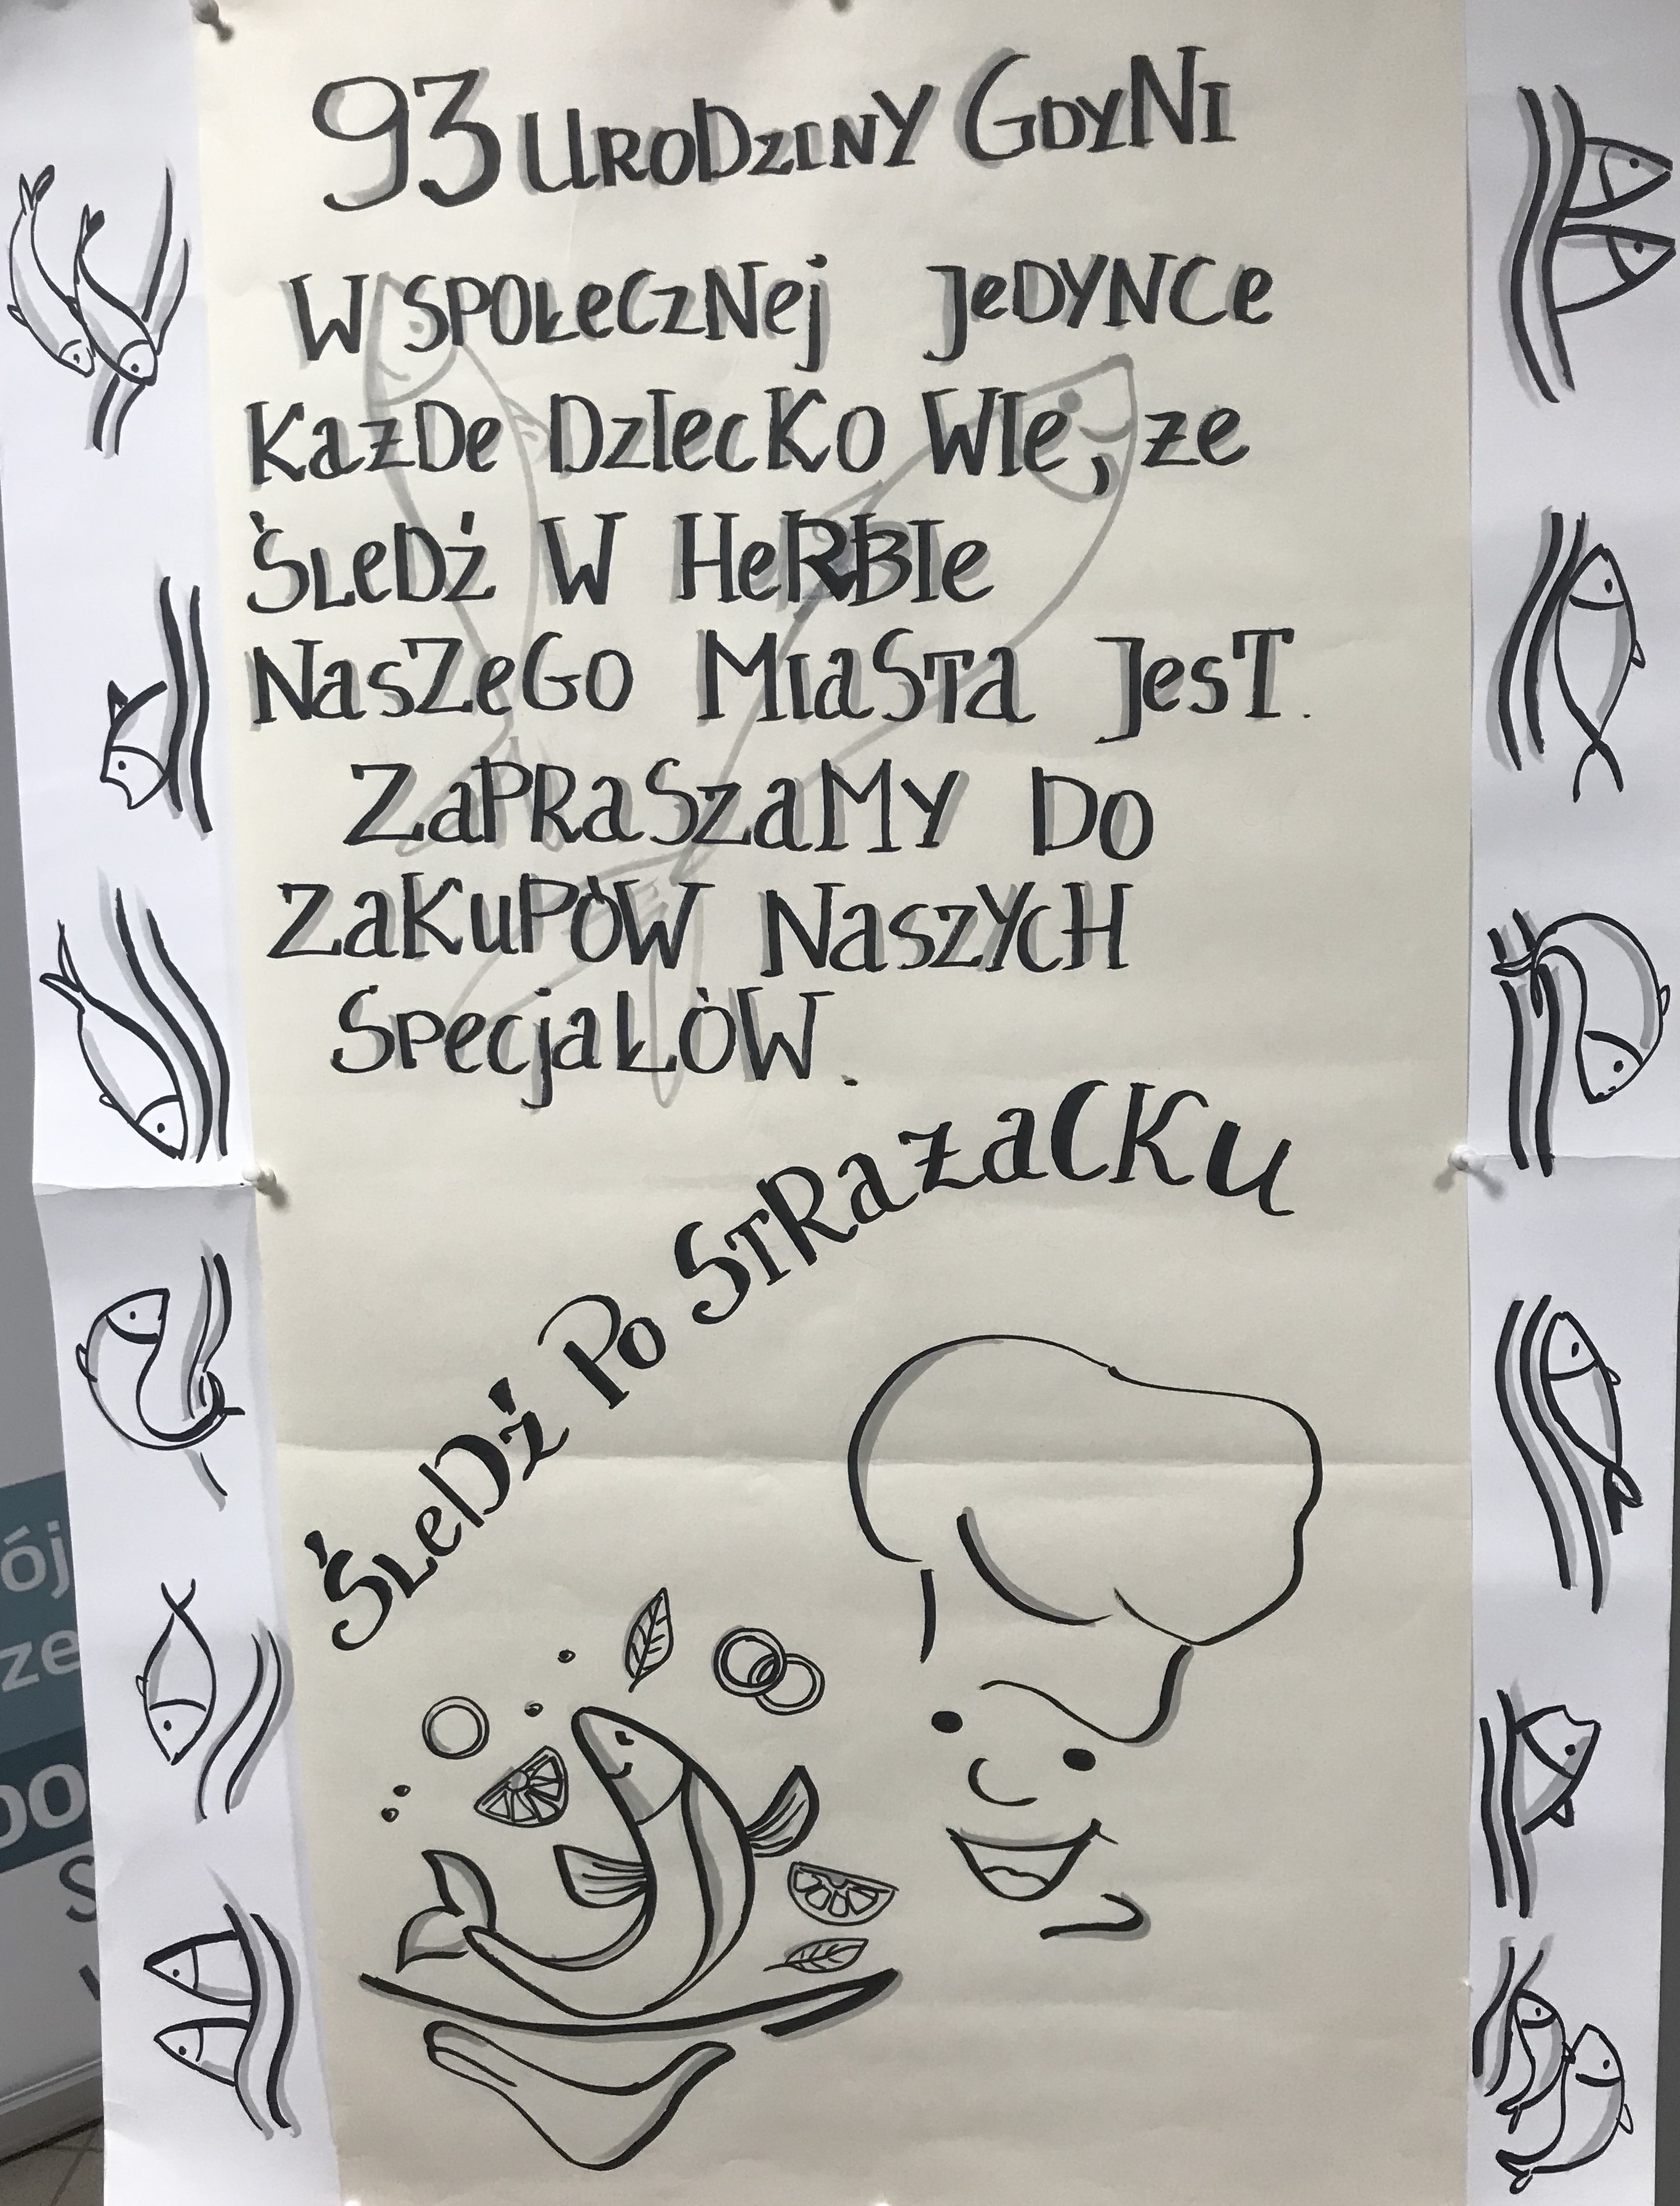 93 URODZINY GDYNI
W SPOŁECZNEJ JEDYNCE
KAŻDE DZIECKO WIE, ŻE
ŚLEDŹ W HERBIE
NASZEGO MIASTA JEST.
ZAPRASZAMY DO
ZAKUPÓW NASZYCH
SPECJAŁÓW.
ŚLEDŹ PO STRAŻACKU
ój
ze
po
S